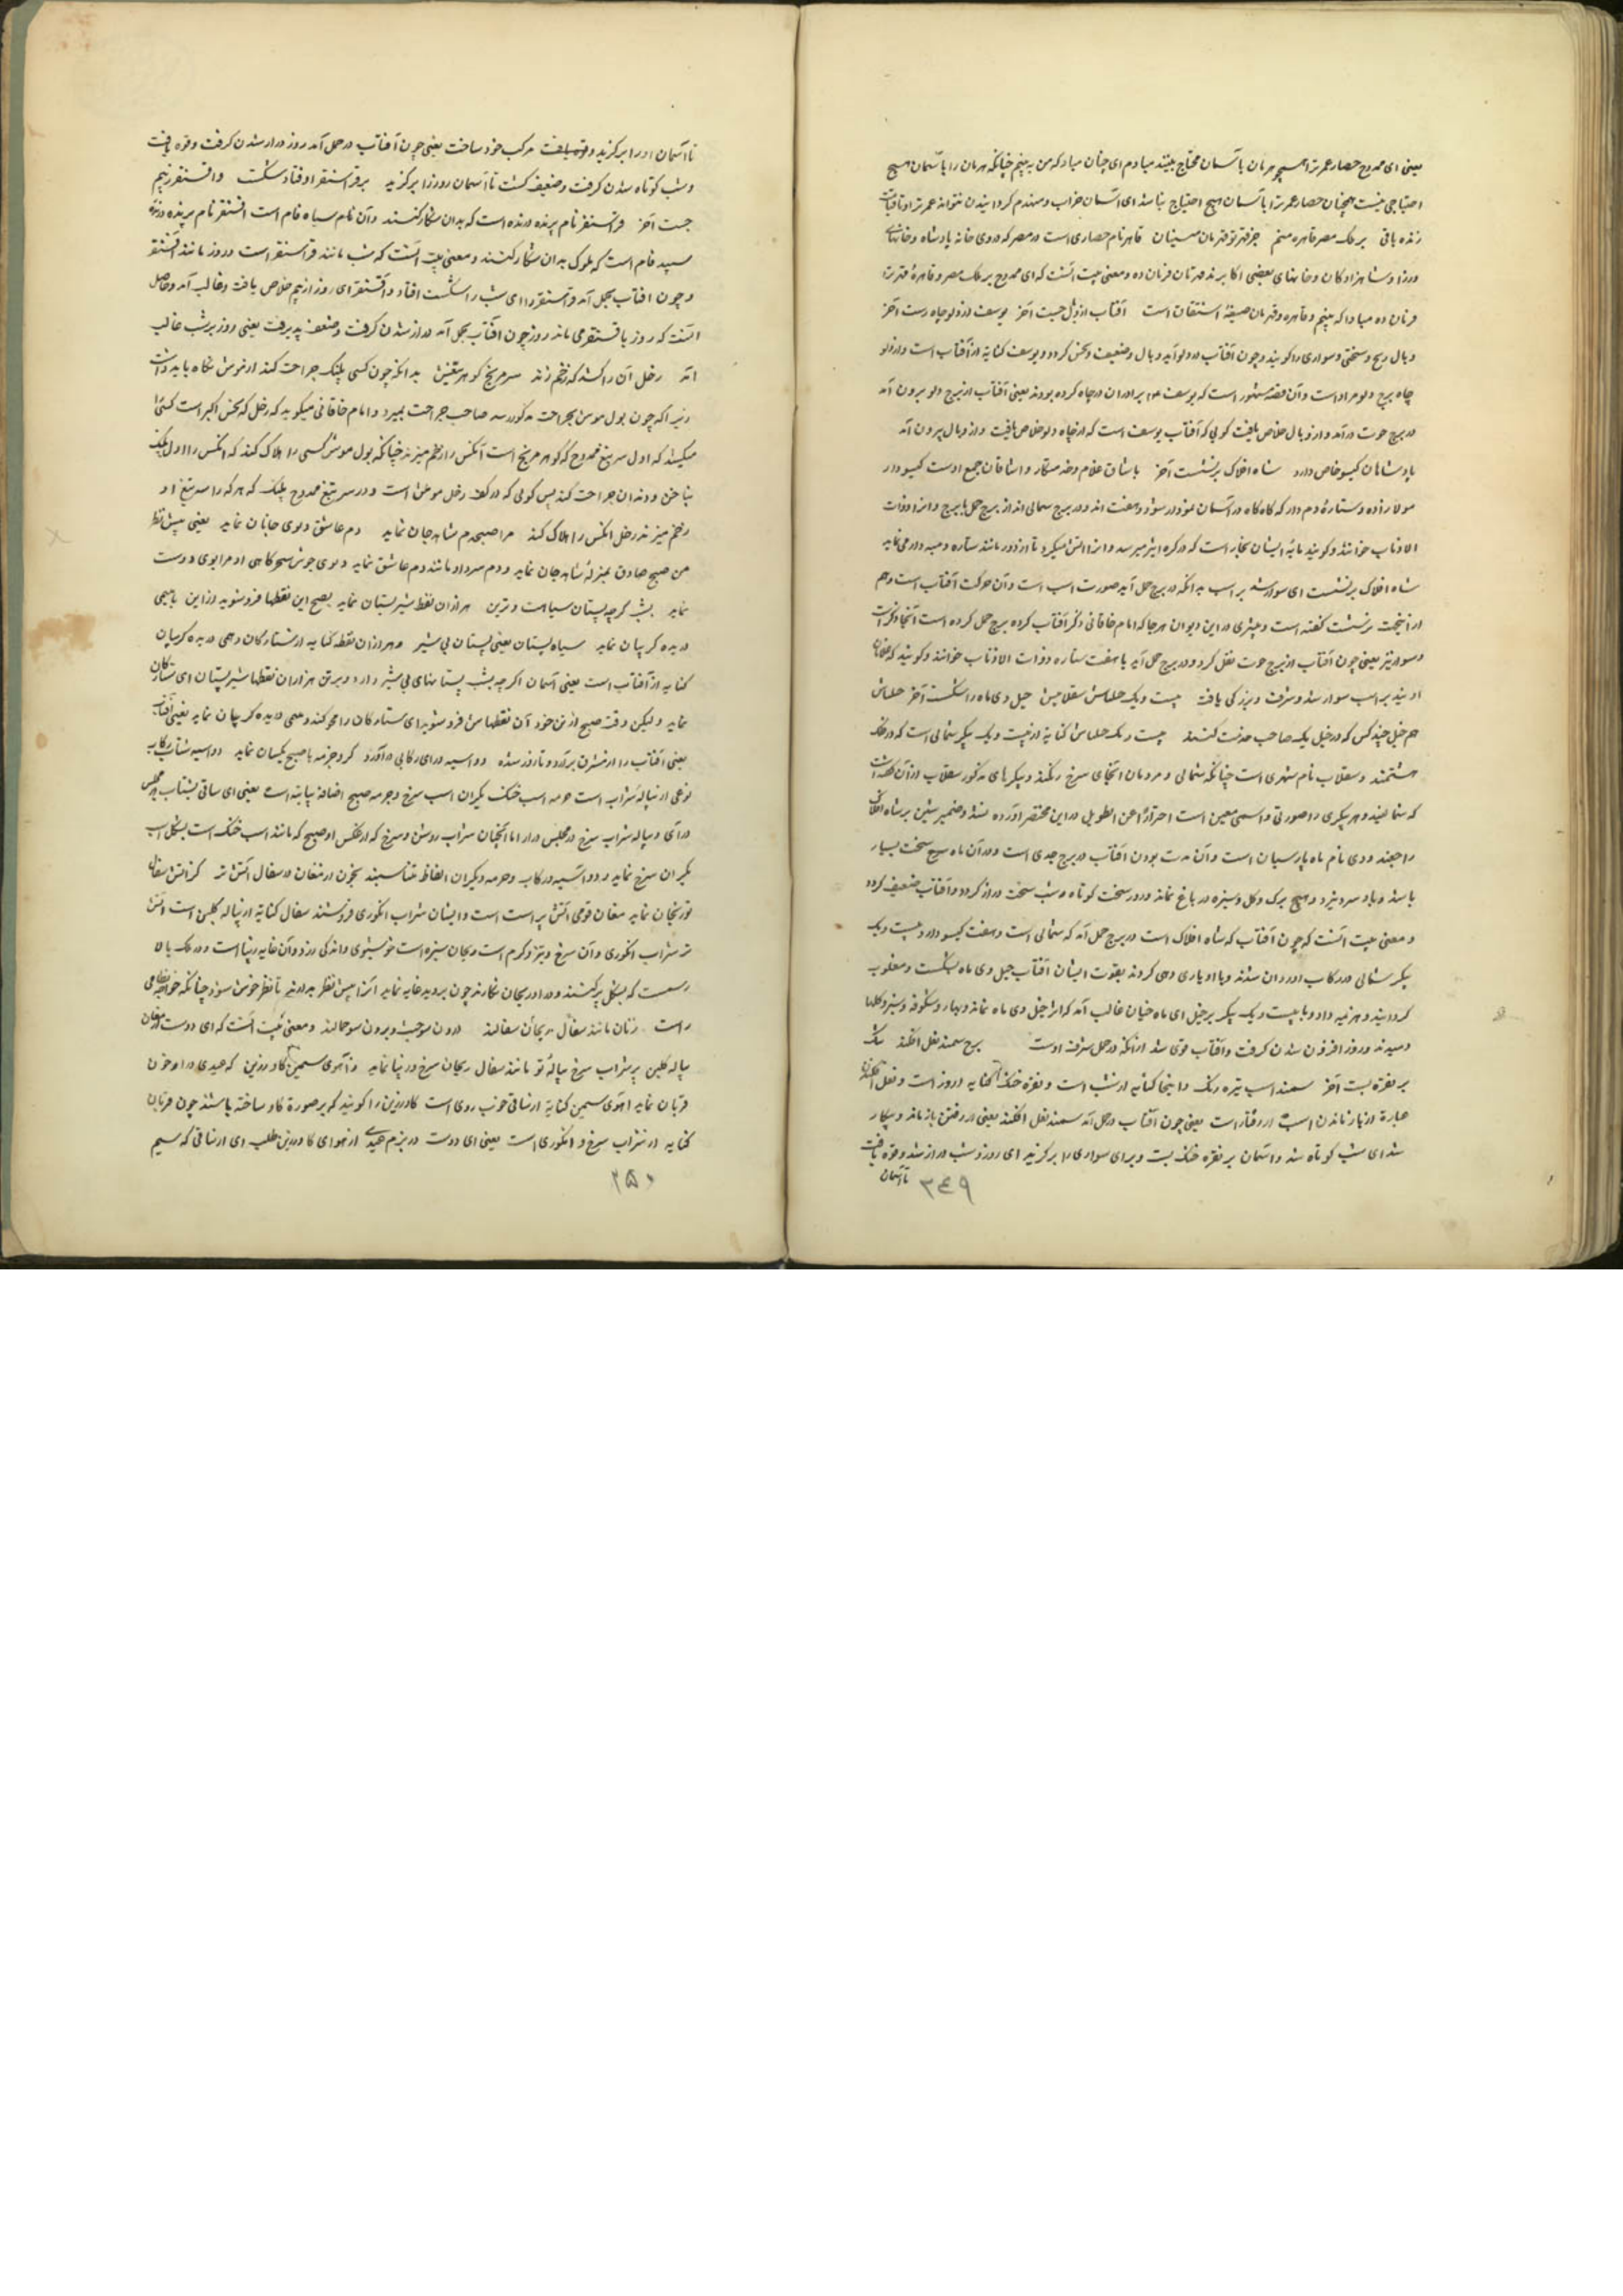 یعنی ای ممدوح حصار عمر ترا همچو هرمان بآسمان محتاج بیند مبادم ای چنان مباد که من به بینم چنانکه هرمان را بآسمان هیچ
احتیاجی نیست همچنان حصار عمر ترا بآسمان هیچ احتیاج نباشد ای آسمان خراب و منهدم کردانیدن نتواند عمر تو او تا قیامت
زنده باقی بر ملک مصر قاهره منم جز قهر تو قهرمان مبینان قاهر نام حصاری است در مصر که دروی خانه پادشاه و خانهای
وزرا و شاهزادکان و خانهای بعضی اکابرند قهرمان فرمان ده و معنی بیت آنست که ای ممدوح بر ملک مصر و قاهره قهر ترا
فرمان ده مبادا که بینم و قاهره و قهرمان صیغهٔ اشتقاق است آفتاب از وبال جست آخر یوسف از دلو چاه رست آخر
وبال رنج و سختی و سواری را کویند و چون آفتاب در دلو آید وبال و ضعیف و نحس کردد و یوسف کنایه از آفتاب است و از دلو
چاه برج دلو مراد است و آن قصه مشهور است که یوسف را برادران در چاه کرده بودند یعنی آفتاب از برج دلو بیرون آمد
در برج حوت درآمد و از وبال خلاص یافت کویی که آفتاب یوسف است که از چاه دلو خلاص یافت و از وبال بیرون آمد
پادشاهان کیسو خاص دارد شاه افلاک برنشست آخر
مولازاده و ستارهٔ دم دار که کاه کاه در آسمان نمودار شود و هفت اند و در برج شمالی اند از برج حمل تا برج و انرا ذوات
الاذناب خوانند و کویند مایهٔ ایشان بخار است که در کره اثیر میرسد و انرا آتش میکیرد تا از دور مانند ستاره دم دار می نماید
شاه افلاک برنشست ای سوار شد بر اسب بدانکه در برج حمل آید صورت اسب است و آن حرکت آفتاب است و هم
از آنجهت برنشست کفته است و بیشتری در این دیوان هر جا که امام خاقانی ذکر آفتاب کرده برج حمل کرده است آنجا ذکر
و سوار نیز یعنی چون آفتاب از برج حوت نقل کرد و در برج حمل آید با هفت ستاره ذوات الاذناب خوانند و کویند که غلامان
اویند بر اسب سوار شد و شرف و بزرکی یافت بیست و یک خیلتاش سقلابیش خیل دی ماه را شکست آخر خیلتاش
هم خیل چند کس که در خیل یک صاحب خدمت کنند بیست و یک خیلتاش کنایه از بیست و یک پیکر شمالی است که در فلک
هشتمند و سقلاب نام شهری است چنانکه شمالی و مردمان آنجای سرخ رنکند و پیکرهای مذکور سقلاب از آن کفته است
که شمالیند و هر پیکری را صورتی و اسمی معین است احترازا عن التطویل در این مختصر آورده نشد و ضمیر شین بر شاه افلاک
راجعند و دی نام ماه پارسیان است و آن مدت بودن آفتاب در برج جدی است و در آن ماه سرما سخت بسیار
باشد و باد سرد خیزد و هیچ برک و کل و سبزه در باغ نماند و روز سخت کوتاه و شب سخت دراز کردد و آفتاب ضعیف کردد
و معنی بیت آنست که چون آفتاب که شاه افلاک است در برج حمل آمد که شمالی است و هفت کیسو دار و بیست و یک
پیکر شمالی در رکاب او روان شدند و با او یاری دهی کردند بقوت ایشان آفتاب خیل دی ماه بشکست و مغلوب
کردانید و هزیمه داد و با بیست و یک پیکر بر خیل ای ماه خیان غالب آمد که از خیل دی ماه نماند و بهار و شکوفه و سبزه و کلها
دمیدند و روز افزون شدن کرفت و آفتاب قوی شد از انکه در حمل شرف اوست برج سمند نعل افکند
بر نقره بست آخر سمند اسب تیره رنک و اینجا کنایه از شب است و نقره خنک کنایه از روز است و نعل افکندن
عبارة از باز ماندن اسب از رفتار است یعنی چون آفتاب در حمل آمد سمند نعل افکند یعنی از رفتن باز ماند و بیکار
شد ای شب کوتاه شد و آسمان بر نقره خنک بست و برای سواری را برکزید ای روز و شب دراز شد و قوه یافت
تا آسمان
۳۴۹
تا آسمان او را برکزید و قوه یافت مرکب خود ساخت یعنی چون آفتاب در حمل آمد روز دراز شدن کرفت و قوه یافت
و شب کوتاه شدن کرفت و ضعیف کشت تا آسمان روز را برکزید بر قراسنقر اوفتاد شکست و اقسنقر ز بیم
جست آخر قراسنقر نام پرنده درنده است که بدان شکار کنند و آن نام سیاه فام است اقسنقر نام پرنده درنده
سپید فام است که ملوک بدان شکار کنند و معنی بیت آنست که شب مانند قراسنقر است و روز مانند اقسنقر
و چون آفتاب بحمل آمد قراسنقر را ای شب را شکست افتاد و اقسنقر ای روز از بیم خلاص یافت و غالب آمد و حاصل
آنست که روز باقسنقر می ماند روز چون آفتاب بحمل آمد دراز شدن کرفت و ضعف پذیرفت یعنی روز بر شب غالب
آمد زحل آن را کشد که زخم زند سر مریخ کوهر تیغش بدانکه چون کسی پلنک جراحت کند از موش نکاه باید داشت
زیراکه چون بول موش بجراحت مذکور رسد صاحب جراحت بمیرد و امام خاقانی میکوید که زحل که نحس اکبر است کسی را
میکشد که اول سر تیغ ممدوح که کوهر مریخ است آنکس را زخم میزند چنانکه بول موش کسی را هلاک کند که آنکس را اول پلنک
بناخن و دندان جراحت کند پس کویی که در کف زحل موش است و در سر تیغ ممدوح پلنک که هر که را سر تیغ او
زخم میزند زحل انکس را هلاک کند مرا صبحدم شاهد جان نماید دم عاشق و بوی جانان نماید یعنی پیش نظر
من صبح صادق بمنزلهٔ شاهد جان نماید و دم سرد او مانند دم عاشق نماید و بوی خوش سحرکاهی او مرا بوی دوست
نماید بشب کرچه پستان سیاهست و برتن هزاران نقط شیر پستان نماید بصبح این نقطها فرو شوید از این بامی
دریده کریبان نماید سیاه پستان یعنی پستان بی شیر و هزاران نقطه کنایه از ستارکان و می دریده کریبان
کنایه از آفتاب است یعنی آسمان اکر چه بشب پستانهای بی شیر دارد و بر تن هزاران نقطها شیر پستان ای ستارکان
نماید ولیکن وقت صبح از تن خود آن نقطهاش فرو شوید ای ستارکان را محو کند و می دریده کریبان نماید یعنی آفتاب
یعنی آفتاب را از مشرق برآرد و تا روز شده دو اسبه درای رکابی درآورد کزو جرمه با صبح یکسان نماید دو اسبه شتاب رکاب
نوعی از پیاله شراب است جرمه اسب خنک یکران اسب سرخ و جرمه صبح اضافه بیانیه است یعنی ای ساقی بشتاب بمجلس
درآی و پیاله شراب سرخ در مجلس درار اما آنچنان شراب روشن و سرخ که از عکس او صبح که مانند اسب خنک است بشکل اسب
یکران سرخ نماید و دو اسبه و رکاب و جرمه و یکران الفاظ متناسبند بخون مغان در سفال آتش تر کز آتش سفال
تو ریحان نماید مغان قومی آتش پرست است و ایشان شراب انکوری فروشند سفال کنایه از پیاله کلین است و آتش
تر شراب انکوری و آن سرخ و تیز و کرم است و ریحان سبزه است خوشبوی و اندکی زرد و آن غایه زیبا است و در ملک بالا
رسمست که بشکل پرکنند و در او ریحان نکارند چون بروید غایه نماید آنرا پیش نظر بدارند تا نظر خوش شود چنانکه خواجه نظامی
راست زنان مانند سفال ریحان سفالند درون سو خبث و برون سو جمالند و معنی بیت آنست که ای دوست از مغان
پیاله کلین پر شراب سرخ پیالهٔ تو مانند سفال ریحان سرخ و زیبا نماید ز آهوی سیمین کاو زرین که عیدی در او خون
قربان نماید آهوی سیمین کنایه از ساقی خوب روی است کاو زرین را کویند که بر صورة کاو ساخته باشند چون قربان
کنایه از شراب سرخ و انکوری است یعنی ای دوست در بزم عیدی از هوای کاو زرین طلب ای از ساقی که سیم
۳۵۰